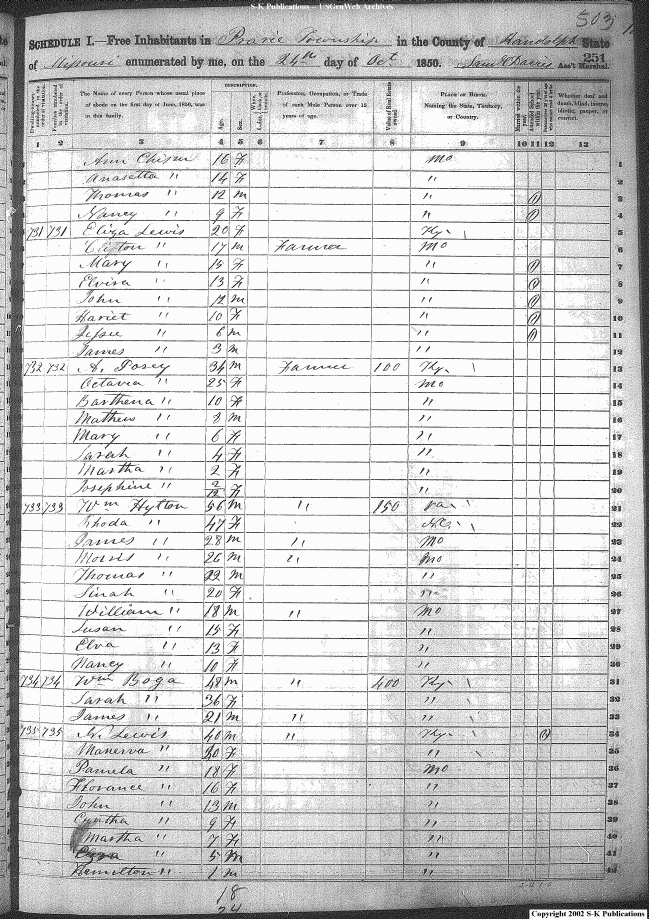 S-K Publications – USGenWeb Archives
503
SCHEDULE I.—Free Inhabitants in Prarie Township in the County of Randolph State
of Missouri enumerated by me, on the 24th day of Oct 1850. Saml H Davis Ass't Marshal.
251
Dwelling-houses numbered in the order of visitation.
Families numbered in the order of visitation.
The Name of every Person whose usual place of abode on the first day of June, 1850, was in this family.
DESCRIPTION.
Age.
Sex.
Profession, Occupation, or Trade of each Male Person over 15 years of age.
Value of Real Estate owned.
PLACE OF BIRTH. Naming the State, Territory, or Country.
Married within the year.
Whether deaf and dumb, blind, insane, idiotic, pauper, or convict.
1 2 3 4 5 6 7 8 9 10 11 12 13
Ann Chism 16 F Mo 1
Anasetta " 14 F " 2
Thomas " 12 M " 1 3
Nancy " 9 F " 1 4
731 731 Eliza Lewis 20 F Ky 5
Clifton " 17 M Farmer Mo 6
Mary " 15 F " 1 7
Elvira " 13 F " 1 8
John " 12 M " 1 9
Hariet " 10 F " 1 10
Jessee " 6 M " 1 11
James " 3 M " 12
732 732 A. Posey 34 M Farmer 100 Ky 13
Octavia " 25 F Mo 14
Barthena " 10 F " 15
Mathew " 8 M " 16
Mary " 6 F " 17
Sarah " 4 F " 18
Martha " 2 F " 19
Josephine " 2/12 F " 20
733 733 Wm Hytton 56 M " 150 Va 21
Rhoda " 47 F N.C. 22
James " 28 M " Mo 23
Morris " 26 M " Mo 24
Thomas " 22 M " 25
Sinah " 20 F " 26
William " 18 M " Mo 27
Susan " 15 F " 28
Elva " 13 F " 29
Nancy " 10 F " 30
734 734 Wm Boga 48 M " 400 Ky 31
Sarah " 36 F " 32
James " 21 M " " 33
735 735 Lewis 40 M " Ky 1 34
Manerva " F " 35
Pamela " 18 F Mo 36
Florance " 16 F " 37
John " 13 M " 38
Cyntha " 9 F " 39
Martha " 7 F " 40
" 5 M " 41
Hamilton " 1 M " 42
18
24
Copyright 2002 S-K Publications